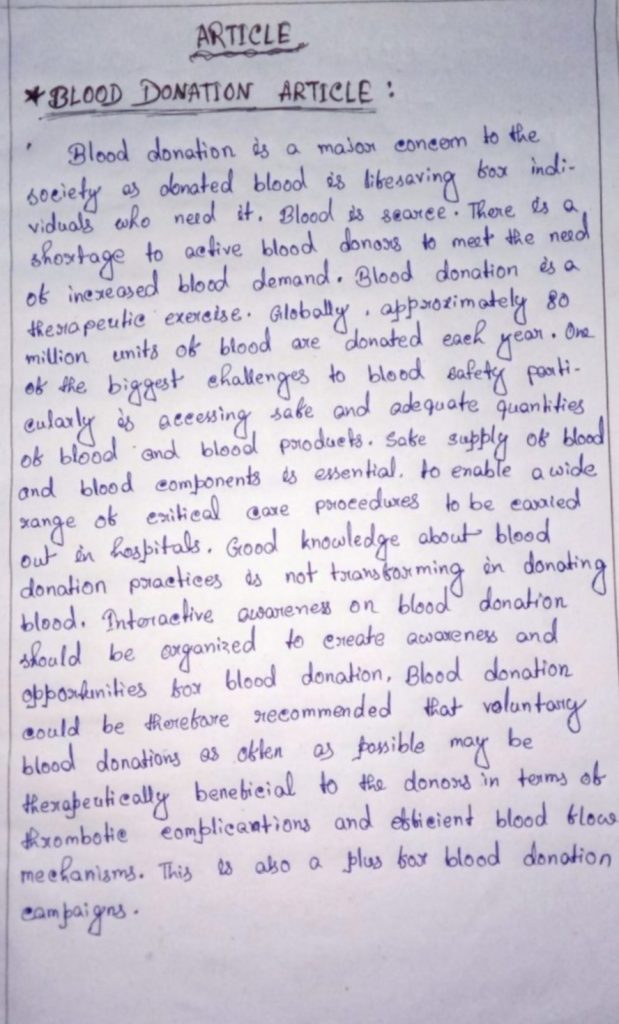 ARTICLE
* BLOOD DONATION ARTICLE :
Blood donation is a major concern to the
society as donated blood is lifesaving for indi-
viduals who need it. Blood is scarce. There is a
shortage to active blood donors to meet the need
of increased blood demand. Blood donation is a
therapeutic exercise. Globally, approximately 80
million units of blood are donated each year. One
of the biggest challenges to blood safety parti-
cularly is accessing safe and adequate quantities
of blood and blood products. Safe supply of blood
and blood components is essential. to enable a wide
range of critical care procedures to be carried
out in hospitals. Good knowledge about blood
donation practices is not transforming in donating
blood. Interactive awareness on blood donation
should be organized to create awareness and
opportunities for blood donation. Blood donation
could be therefore recommended that voluntary
blood donations as often as possible may be
therapeutically beneficial to the donors in terms of
thrombotic complicantions and efficient blood flow
mechanisms. This is also a plus for blood donation
campaigns.